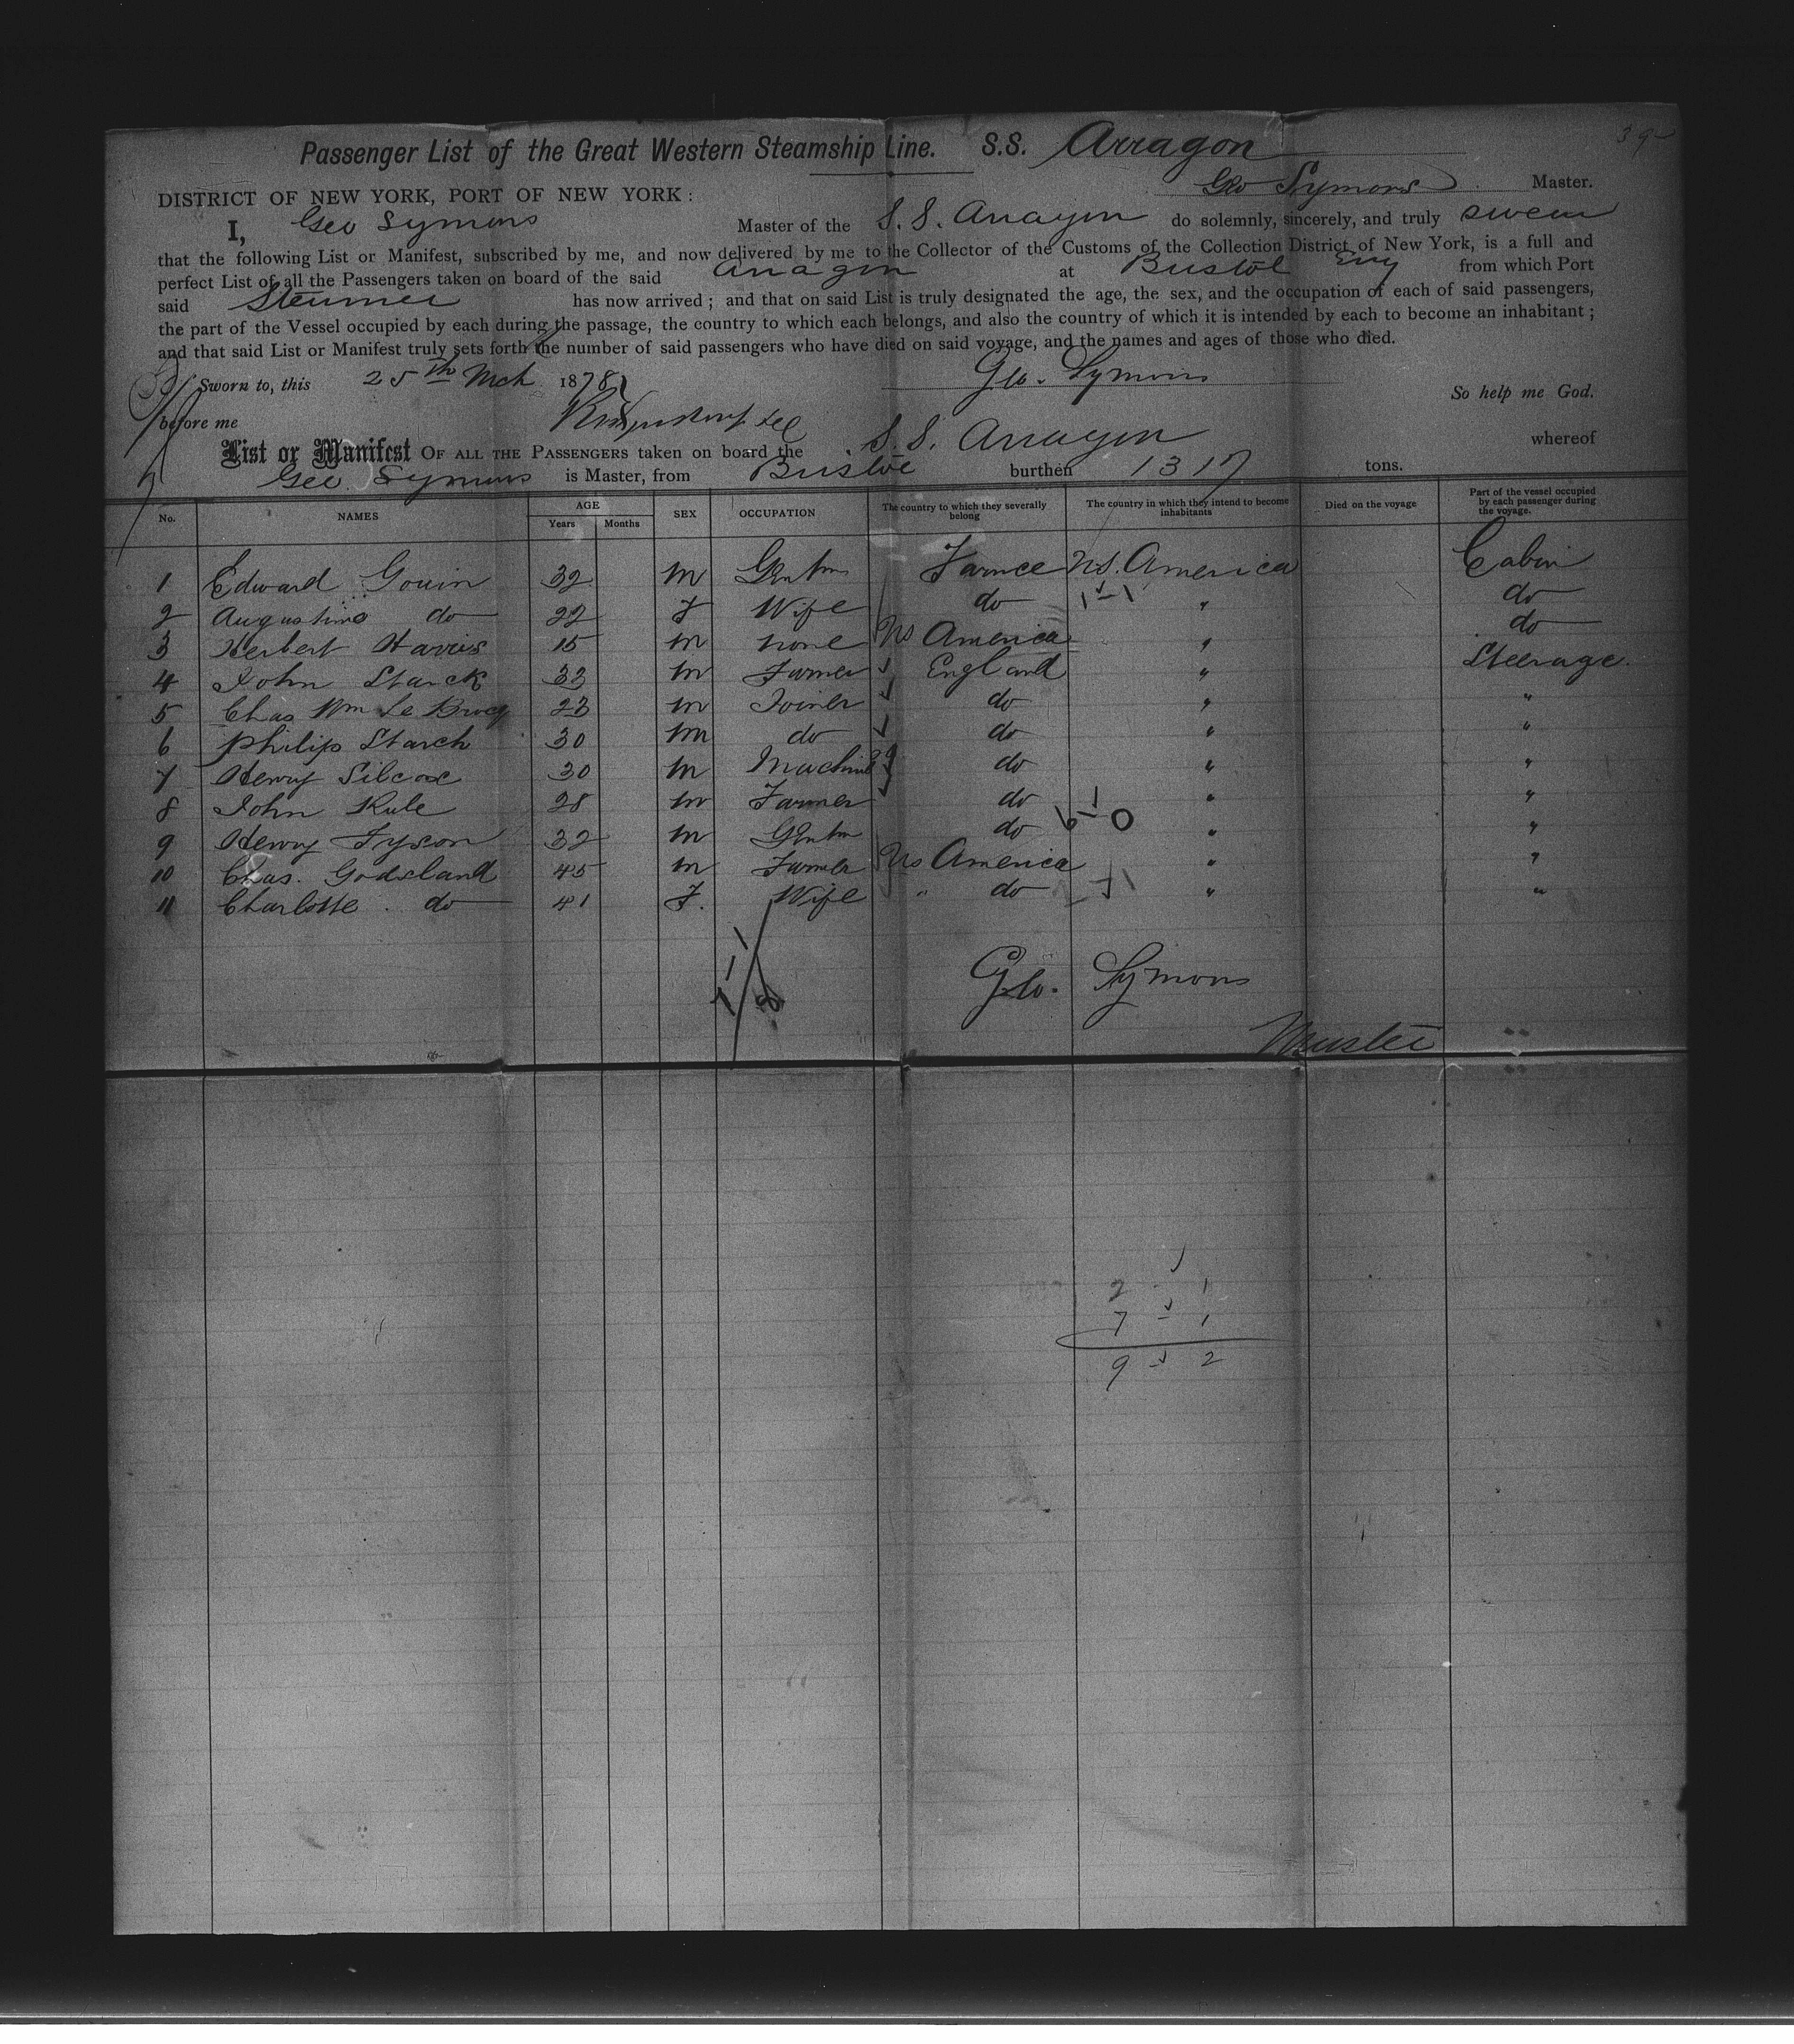 39
Passenger List of the Great Western Steamship Line. S.S. Arragon
Geo Symons Master.
DISTRICT OF NEW YORK, PORT OF NEW YORK:
I, Geo Symons Master of the S. S. Arragon do solemnly, sincerely, and truly swear
that the following List or Manifest, subscribed by me, and now delivered by me to the Collector of the Customs of the Collection District of New York, is a full and
perfect List of all the Passengers taken on board of the said Arragon at Bristol Eng from which Port
said Steamer has now arrived; and that on said List is truly designated the age, the sex, and the occupation of each of said passengers,
the part of the Vessel occupied by each during the passage, the country to which each belongs, and also the country of which it is intended by each to become an inhabitant;
and that said List or Manifest truly sets forth the number of said passengers who have died on said voyage, and the names and ages of those who died.
Sworn to, this 25th Mch 1878 Geo. Symons So help me God.
before me
List or Manifest OF ALL THE PASSENGERS taken on board the S. S. Arragon whereof
Geo. Symons is Master, from Bristol burthen 1317 tons.
No. NAMES AGE Years Months SEX OCCUPATION The country to which they severally belong The country in which they intend to become inhabitants Died on the voyage Part of the vessel occupied by each passenger during the voyage.
1 Edward Gouin 32 M Gentm France US. America Cabin
2 Augustine do 22 F Wife do 1-1 " do
3 Herbert Harris 15 M none US America " do
4 John Starck 33 M Farmer England " Steerage.
5 Chas Wm Le Brocq 23 M Joiner do " "
6 Philip Starch 30 M do do " "
7 Henry Silcox 30 M do " "
8 John Rule 28 M Farmer do " "
9 Henry Tyson 32 M Gentm do 6-0 " "
10 Chas. Godsland 45 M Farmer US America " "
11 Charlotte do 41 F. Wife " do " "
Geo. Symons
Master
2 - 1
7 - 1
9 - 2